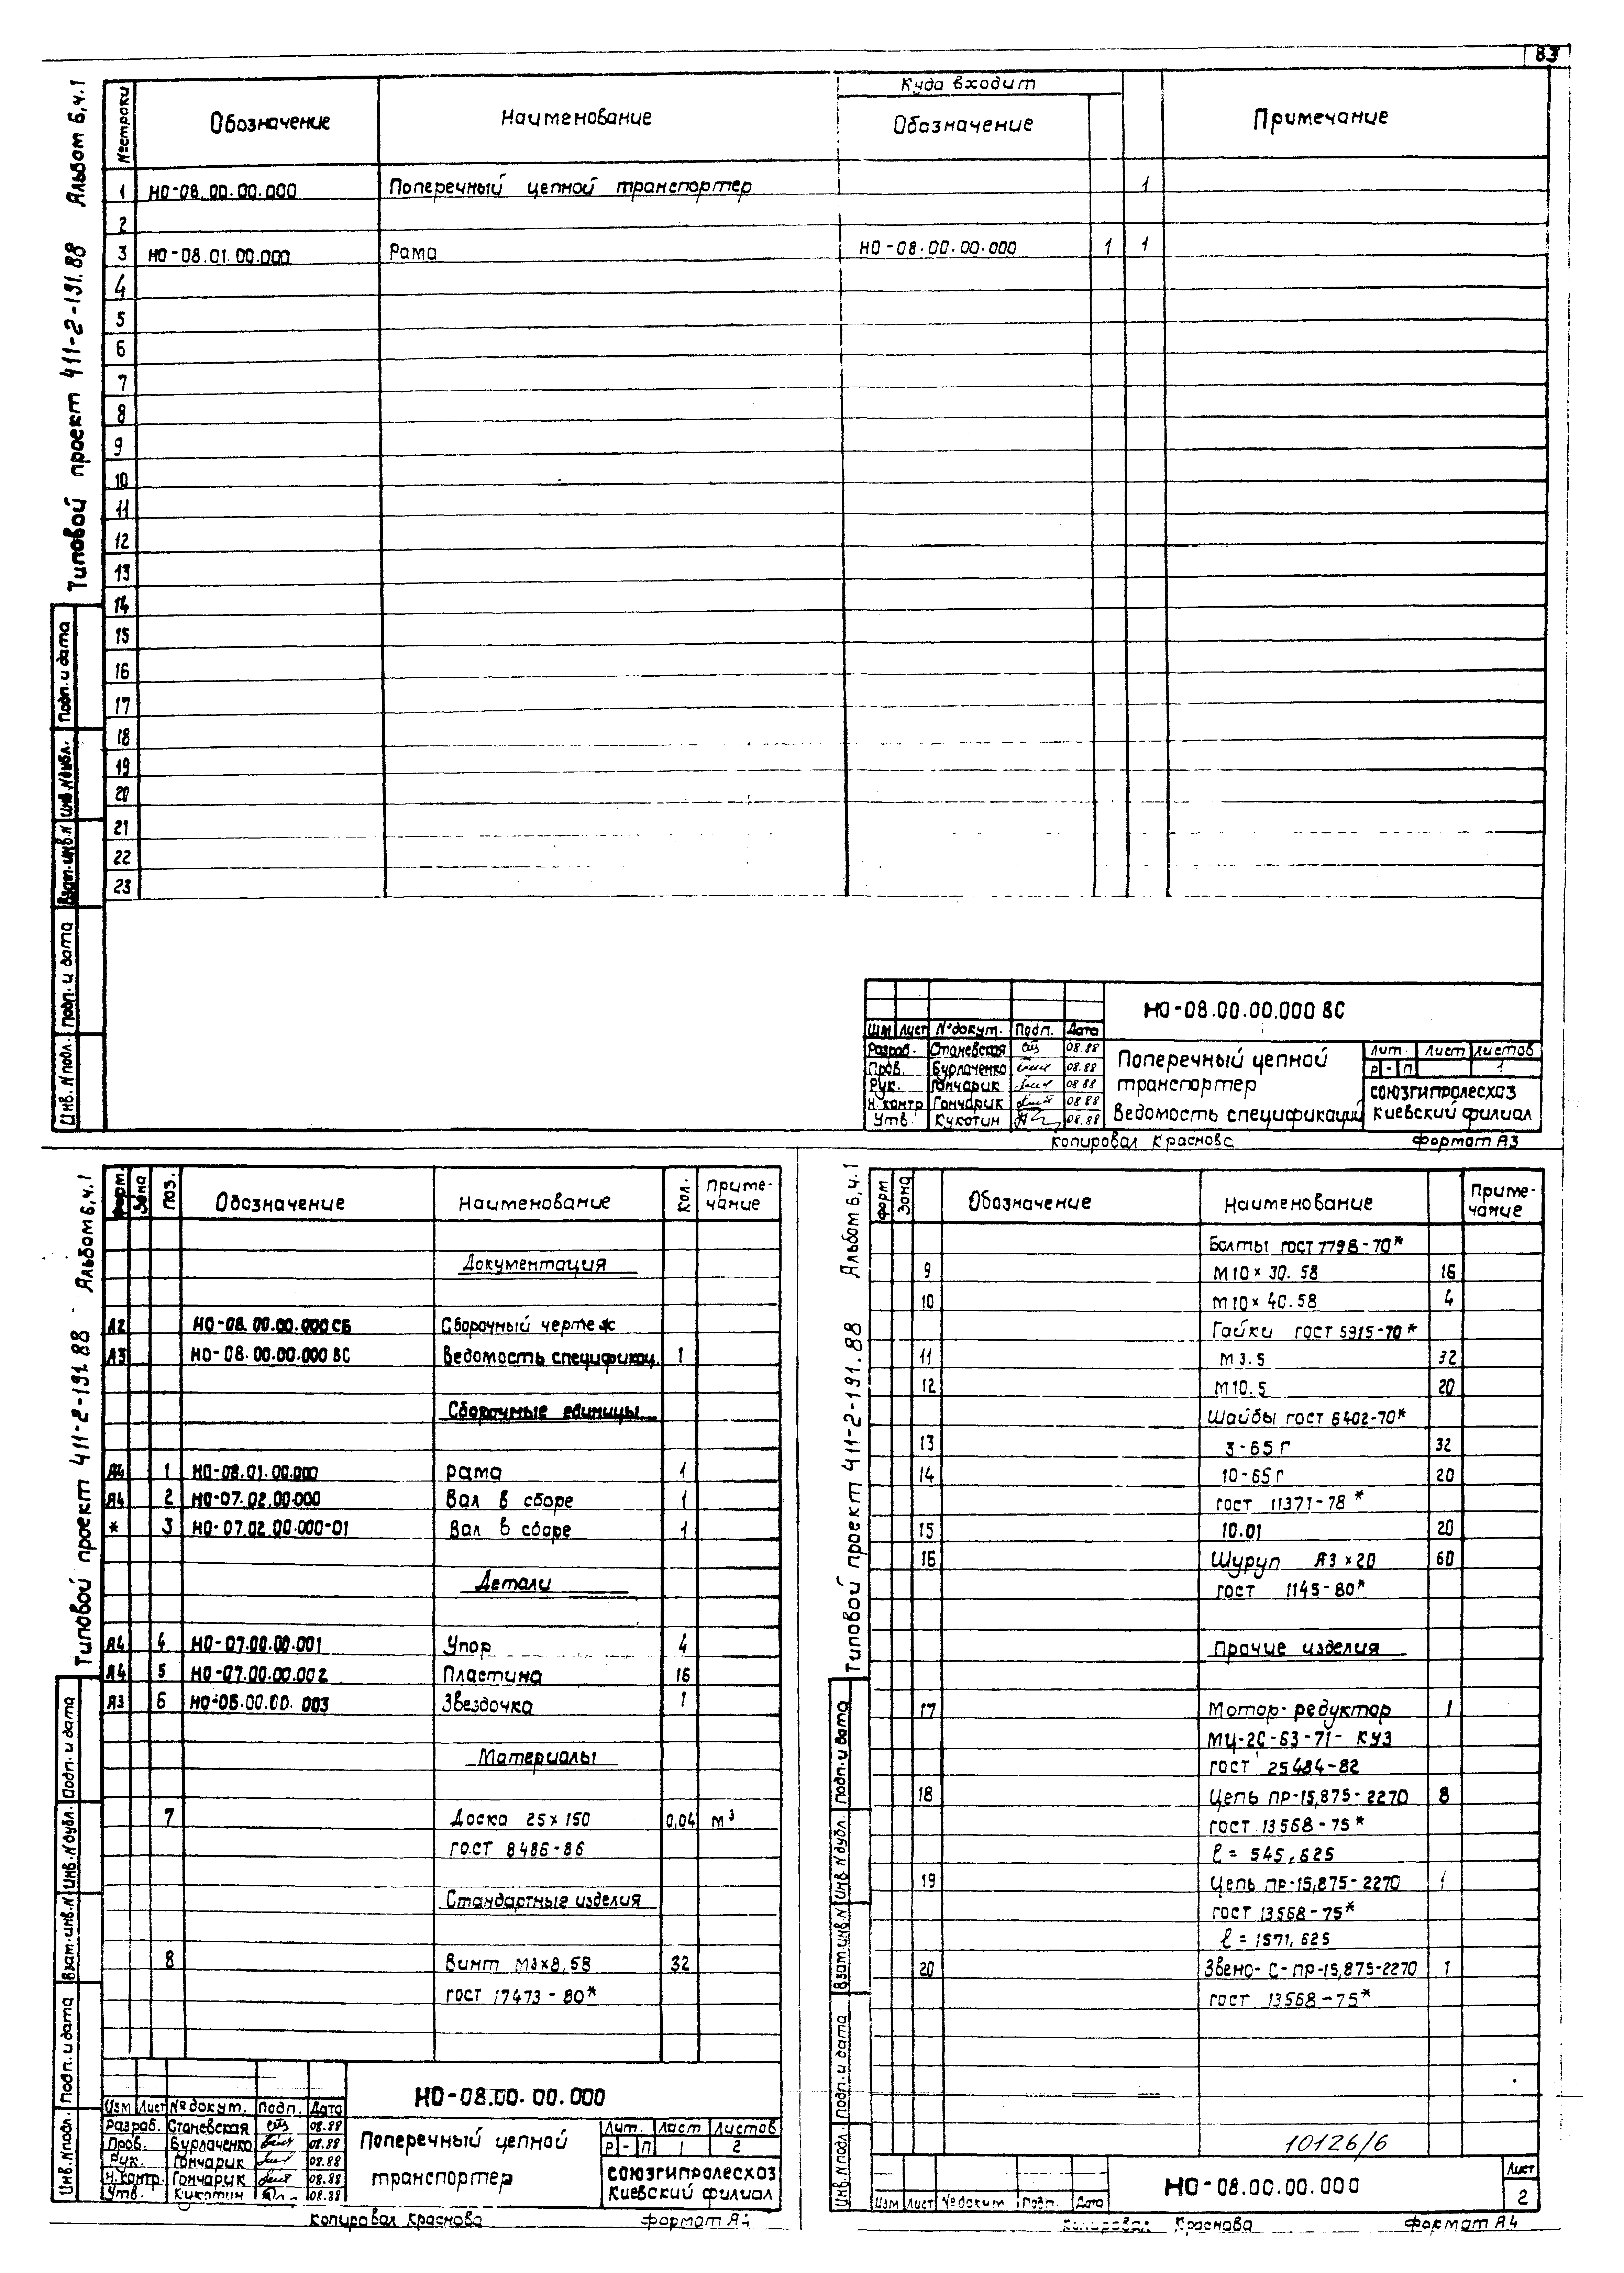 83
Типовой проект 411-2-191.88 Альбом 6, ч.1
№ строки Обозначение Наименование Куда входит Примечание
Обозначение
1 НО-08.00.00.000 Поперечный цепной транспортер 1
2
3 НО-08.01.00.000 Рама НО-08.00.00.000 1 1
4
5
6
7
8
9
10
11
12
13
14
15
16
17
18
19
20
21
22
23
Инв.N подл. Подп. и дата Взат.инв.N Инв.N дубл. Подп. и дата
НО-08.00.00.000 ВС
Изм Лист № докум. Подп. Дата
Разраб. Станевская 08.88
Пров. Бурлаченко 08.88
Рук. Гончарик 08 88
Н.контр Гончарик 08 88
Утв. Кукотин 08.88
Поперечный цепной
транспортер
Ведомость спецификаций
Лит. Лист Листов
Р - П 1
СОЮЗГИПРОЛЕСХОЗ
Киевский филиал
Копировал Краснова Формат А3
Типовой проект 411-2-191.88 Альбом 6, ч.1
Форм. Зона Поз. Обозначение Наименование Кол. Приме-
чание
Документация
А2 НО-08.00.00.000 СБ Сборочный чертеж
А3 НО-08.00.00.000 ВС Ведомость спецификац. 1
Сборочные единицы
А4 1 НО-08.01.00.000 Рама 1
А4 2 НО-07.02.00.000 Вал в сборе 1
* 3 НО-07.02.00.000-01 Вал в сборе 1
Детали
А4 4 НО-07.00.00.001 Упор 4
А4 5 НО-07.00.00.002 Пластина 16
А3 6 НО-06.00.00.003 Звездочка 1
Материалы
7 Доска 25×150 0,04 м³
ГОСТ 8486-86
Стандартные изделия
8 Винт М3×8,58 32
ГОСТ 17473-80*
Инв.N подл. Подп. и дата Взат.инв.N Инв.N дубл. Подп. и дата
НО-08.00.00.000
Изм Лист № докум. Подп. Дата
Разраб. Станевская 08.88
Пров. Бурлаченко 08.88
Рук. Гончарик 08.88
Н.контр. Гончарик 08.88
Утв. Кукотин 08.88
Поперечный цепной
транспортер
Лит. Лист Листов
Р - П 1 2
СОЮЗГИПРОЛЕСХОЗ
Киевский филиал
Копировал Краснова Формат А4
Типовой проект 411-2-191.88 Альбом 6, ч.1
Форм. Зона Обозначение Наименование Приме-
чание
Болты ГОСТ 7798-70*
9 М10×30.58 16
10 М10×40.58 4
Гайки ГОСТ 5915-70*
11 М3.5 32
12 М10.5 20
Шайбы ГОСТ 6402-70*
13 3-65Г 32
14 10-65Г 20
ГОСТ 11371-78*
15 10.01 20
16 Шуруп А3×20 60
ГОСТ 1145-80*
Прочие изделия
17 Мотор-редуктор 1
МЦ-2С-63-71-КУ3
ГОСТ 25484-82
18 Цепь ПР-15,875-2270 8
ГОСТ 13568-75*
ℓ = 545,625
19 Цепь ПР-15,875-2270 1
ГОСТ 13568-75*
ℓ = 1571,625
20 Звено-С-ПР-15,875-2270 1
ГОСТ 13568-75*
Инв.N подл. Подп. и дата Взат.инв.N Инв.N дубл. Подп. и дата
10126/6
Изм Лист № докум Подп. Дата
НО-08.00.00.000
Лист
2
Копировал Краснова Формат А4